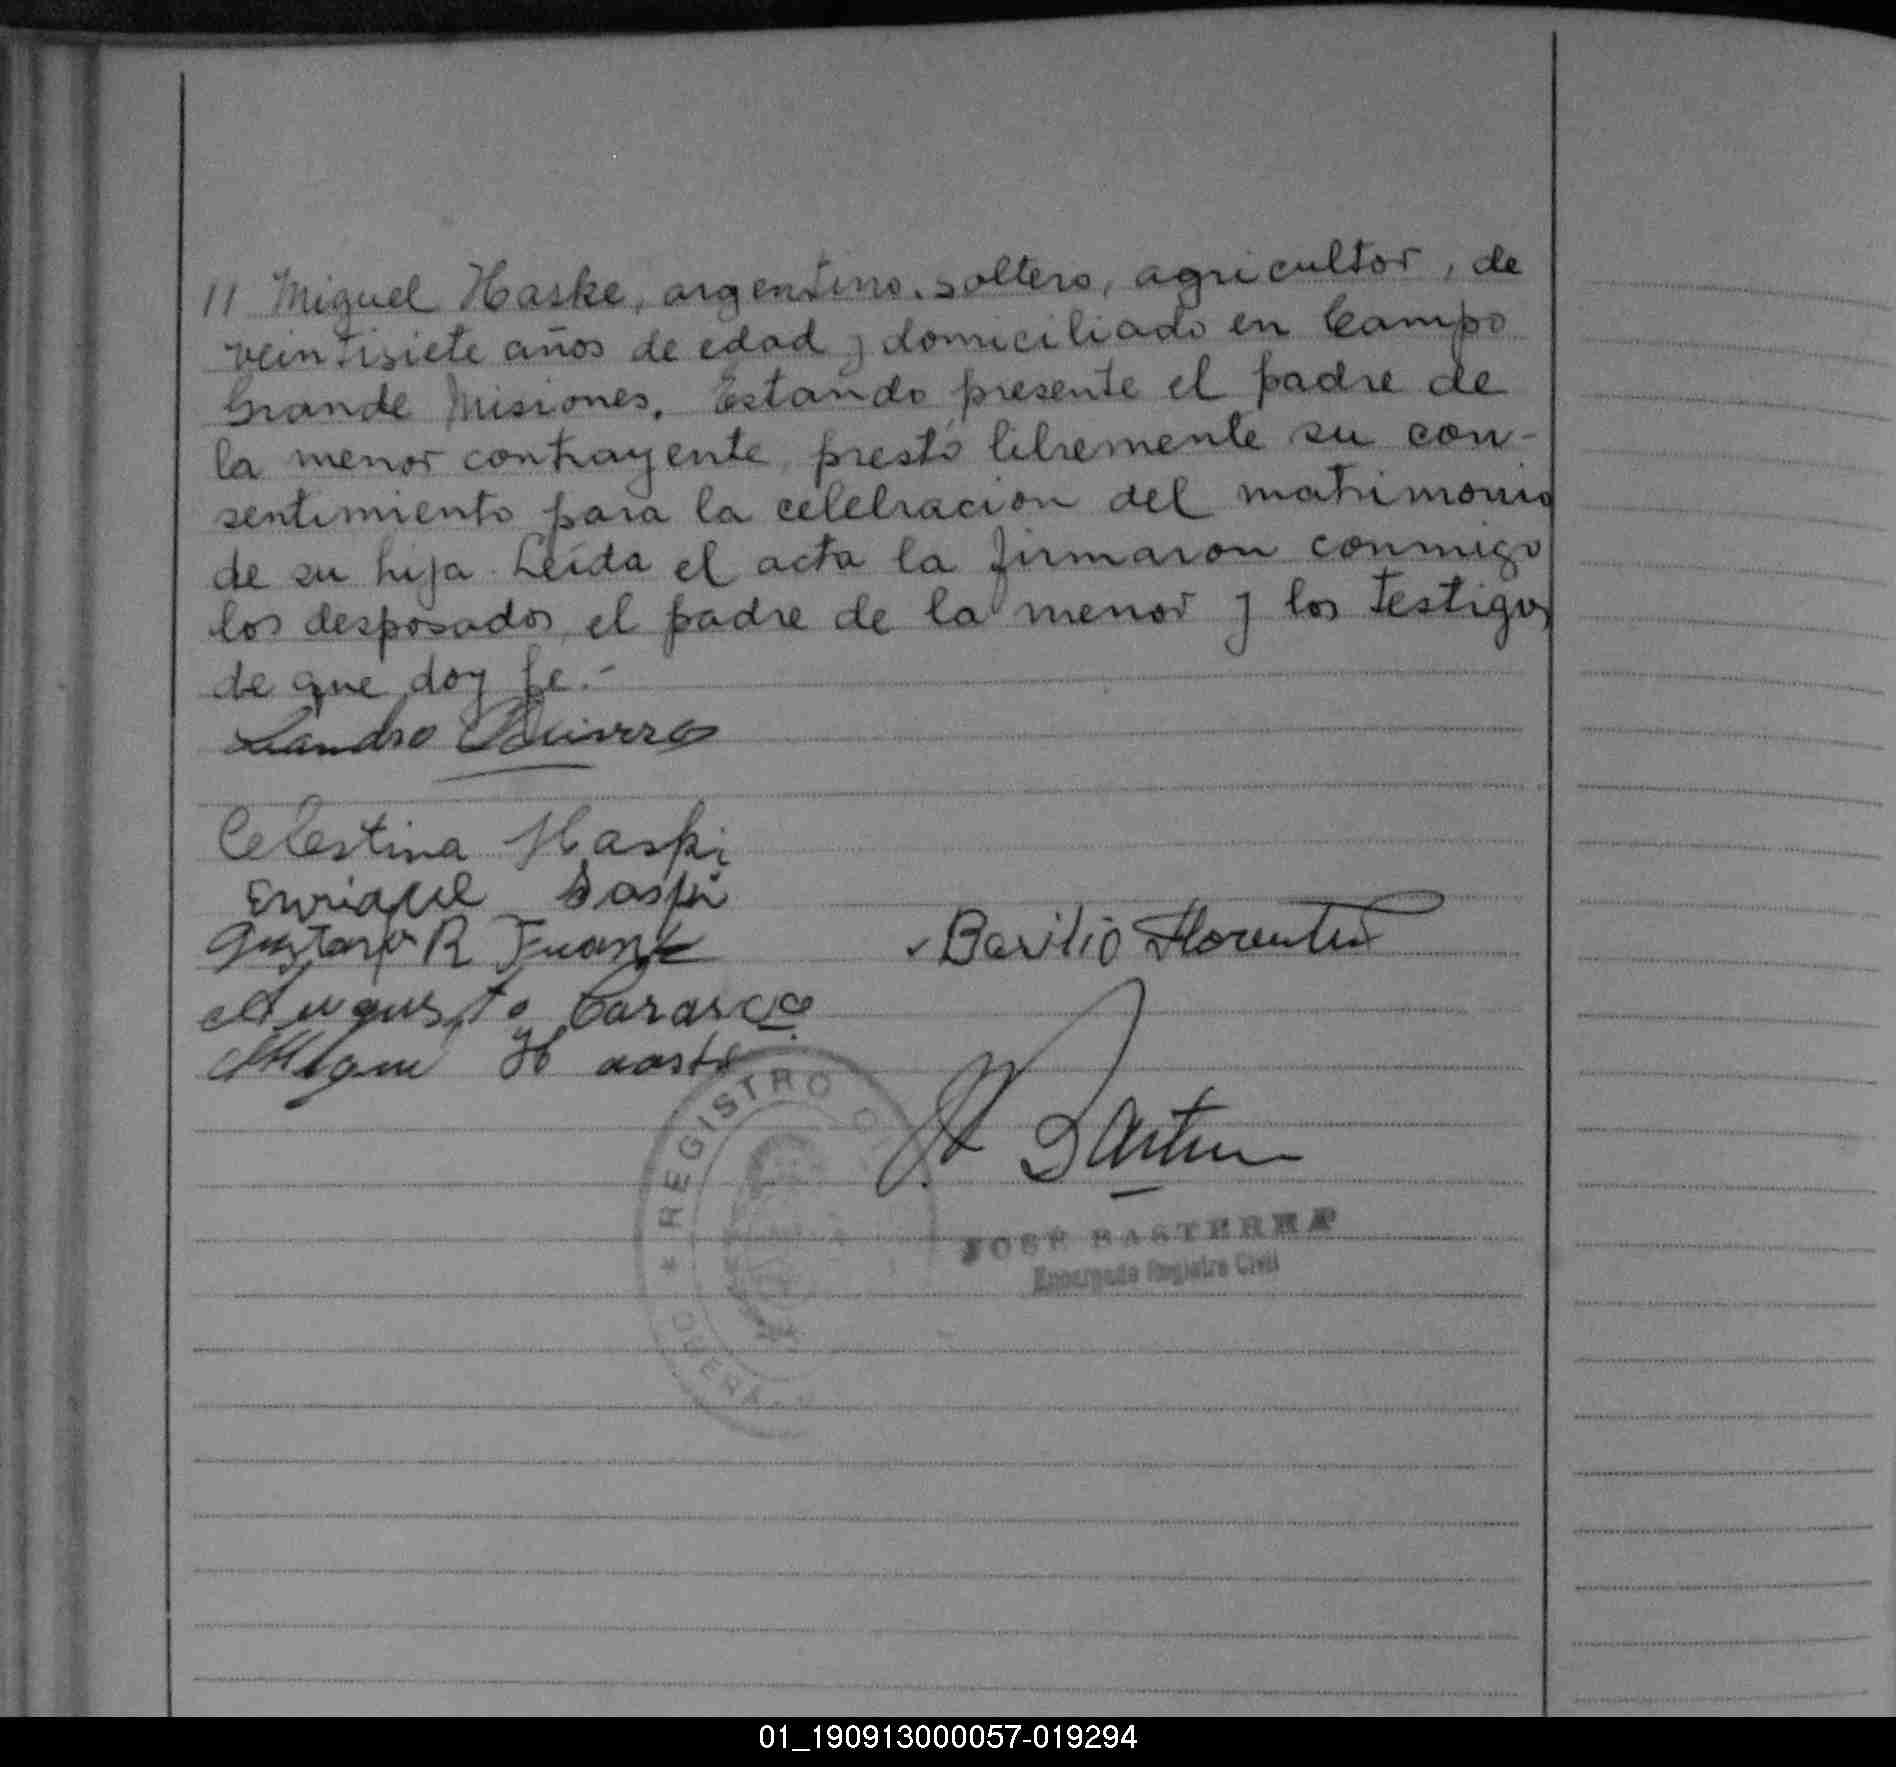 11 Miguel Haske, argentino, soltero, agricultor, de
veintisiete años de edad y domiciliado en Campo
Grande Misiones. Estando presente el padre de
la menor contrayente, prestó libremente su con-
sentimiento para la celebracion del matrimonio
de su hija. Leída el acta la firmaron conmigo
los desposados, el padre de la menor y los testigos
de que doy fe.-
Leandro
Celestina Haski
Enrique Haski
Gustavo R
Basilio Florentin
Augusto Carasco
Migue H
REGISTRO
OBERA
JOSÉ BASTERRA
Encargado Registro Civil
01_190913000057-019294